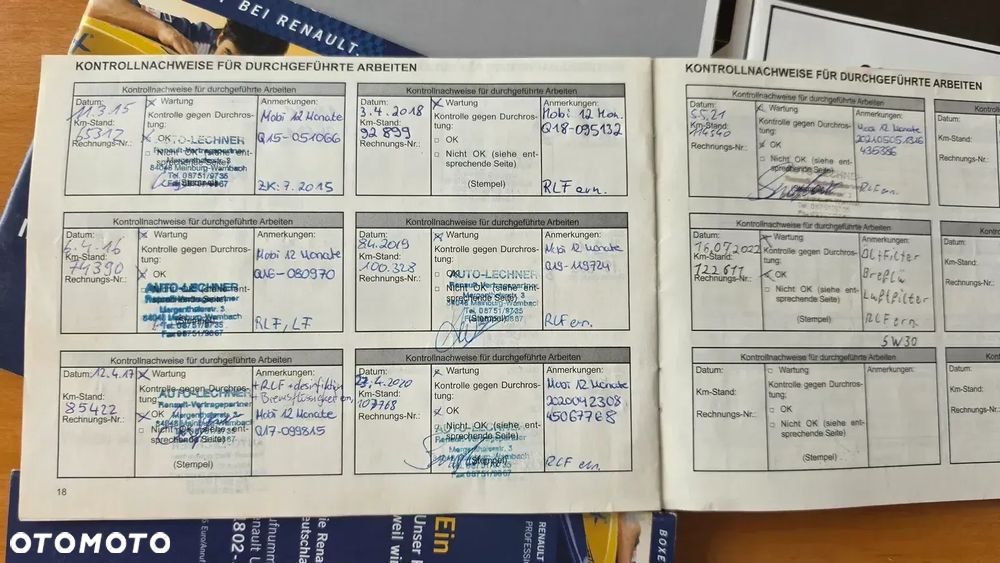 BEI RENAULT.
KONTROLLNACHWEISE FÜR DURCHGEFÜHRTE ARBEITEN
Kontrollnachweise für durchgeführte Arbeiten
Datum: 11.3.15
Km-Stand: 65312
Rechnungs-Nr.:
x Wartung
Kontrolle gegen Durchrostung:
x OK
□ Nicht OK (siehe entsprechende Seite)
AUTO-LECHNER
Renault-Vertragspartner
Mergenthalerstr. 3
84048 Mainburg-Wambach
Tel. 08751/9735
Fax 08751/9867
Anmerkungen:
Mobi 12 Monate
Q15-051066
ZK: 7. 2015
Kontrollnachweise für durchgeführte Arbeiten
Datum:
3.4.2018
Km-Stand:
92 899
Rechnungs-Nr.:
x Wartung
Kontrolle gegen Durchrostung:
□ OK
□ Nicht OK (siehe entsprechende Seite)
(Stempel)
Anmerkungen:
Mobi 12 Mon.
Q18-095132
RLF ern.
Kontrollnachweise für durchgeführte Arbeiten
Datum:
6.4.16
Km-Stand:
74390
Rechnungs-Nr.:
x Wartung
Kontrolle gegen Durchrostung:
x OK
AUTO-LECHNER
Renault-Vertragspartner
Mergenthalerstr. 3
84048 Mainburg-Wambach
Tel. 08751/9735
Fax 08751/9867
Anmerkungen:
Mobi 12 Monate
Q16-080970
RLF, LF
Kontrollnachweise für durchgeführte Arbeiten
Datum:
8.4.2019
Km-Stand:
100.328
Rechnungs-Nr.:
x Wartung
Kontrolle gegen Durchrostung:
□ OK
□ Nicht OK (siehe entsprechende Seite)
(Stempel)
AUTO-LECHNER
Renault-Vertragspartner
Mergenthalerstr. 3
84048 Mainburg-Wambach
Tel. 08751/9735
Fax 08751/9867
Anmerkungen:
Mobi 12 Monate
Q19-119724
RLF ern.
Kontrollnachweise für durchgeführte Arbeiten
Datum: 12.4.17
Km-Stand:
85422
Rechnungs-Nr.:
x Wartung
Kontrolle gegen Durchrostung:
x OK
□ Nicht OK (siehe entsprechende Seite)
(Stempel)
AUTO-LECHNER
Renault-Vertragspartner
Mergenthalerstr. 3
84048 Mainburg-Wambach
Anmerkungen:
+RLF
Mobi 12 Monate
Q17-099815
Kontrollnachweise für durchgeführte Arbeiten
Datum:
.4.2020
Km-Stand:
107768
Rechnungs-Nr.:
x Wartung
Kontrolle gegen Durchrostung:
x OK
□ Nicht OK (siehe entsprechende Seite)
(Stempel)
Renault-Vertragspartner
Mergenthalerstr. 3
84048 Mainburg-Wambach
Tel. 08751/9735
Fax 08751/9867
Anmerkungen:
Mobi 12 Monate
2020042308
45067768
RLF ern.
18
KONTROLLNACHWEISE FÜR DURCHGEFÜHRTE ARBEITEN
Kontrollnachweise für durchgeführte Arbeiten
Datum:
5.5.21
Km-Stand:
114540
Rechnungs-Nr.:
x Wartung
Kontrolle gegen Durchrostung:
x OK
□ Nicht OK (siehe entsprechende Seite)
(Stempel)
Anmerkungen:
Mobi 12 Monate
20210505 1326
435386
RLF ern.
Kontrollnachweise für durchgeführte Arbeiten
Datum:
16.07.2022
Km-Stand:
122611
Rechnungs-Nr.:
x Wartung
Kontrolle gegen Durchrostung:
x OK
□ Nicht OK (siehe entsprechende Seite)
(Stempel)
Anmerkungen:
Ölfilter
Luftfilter
RLF ern.
5W30
Kontrollnachweise für durchgeführte Arbeiten
Datum:
Km-Stand:
Rechnungs-Nr.:
□ Wartung
Kontrolle gegen Durchrostung:
□ OK
□ Nicht OK (siehe entsprechende Seite)
(Stempel)
Anmerkungen:
Datum:
Km-Stand:
Rechnungs-
Datum:
Km-Stand:
Rechnungs-
Datum:
Km-Stand
Rechnungs
Ein
RENAULT
BOXE
OTOMOTO